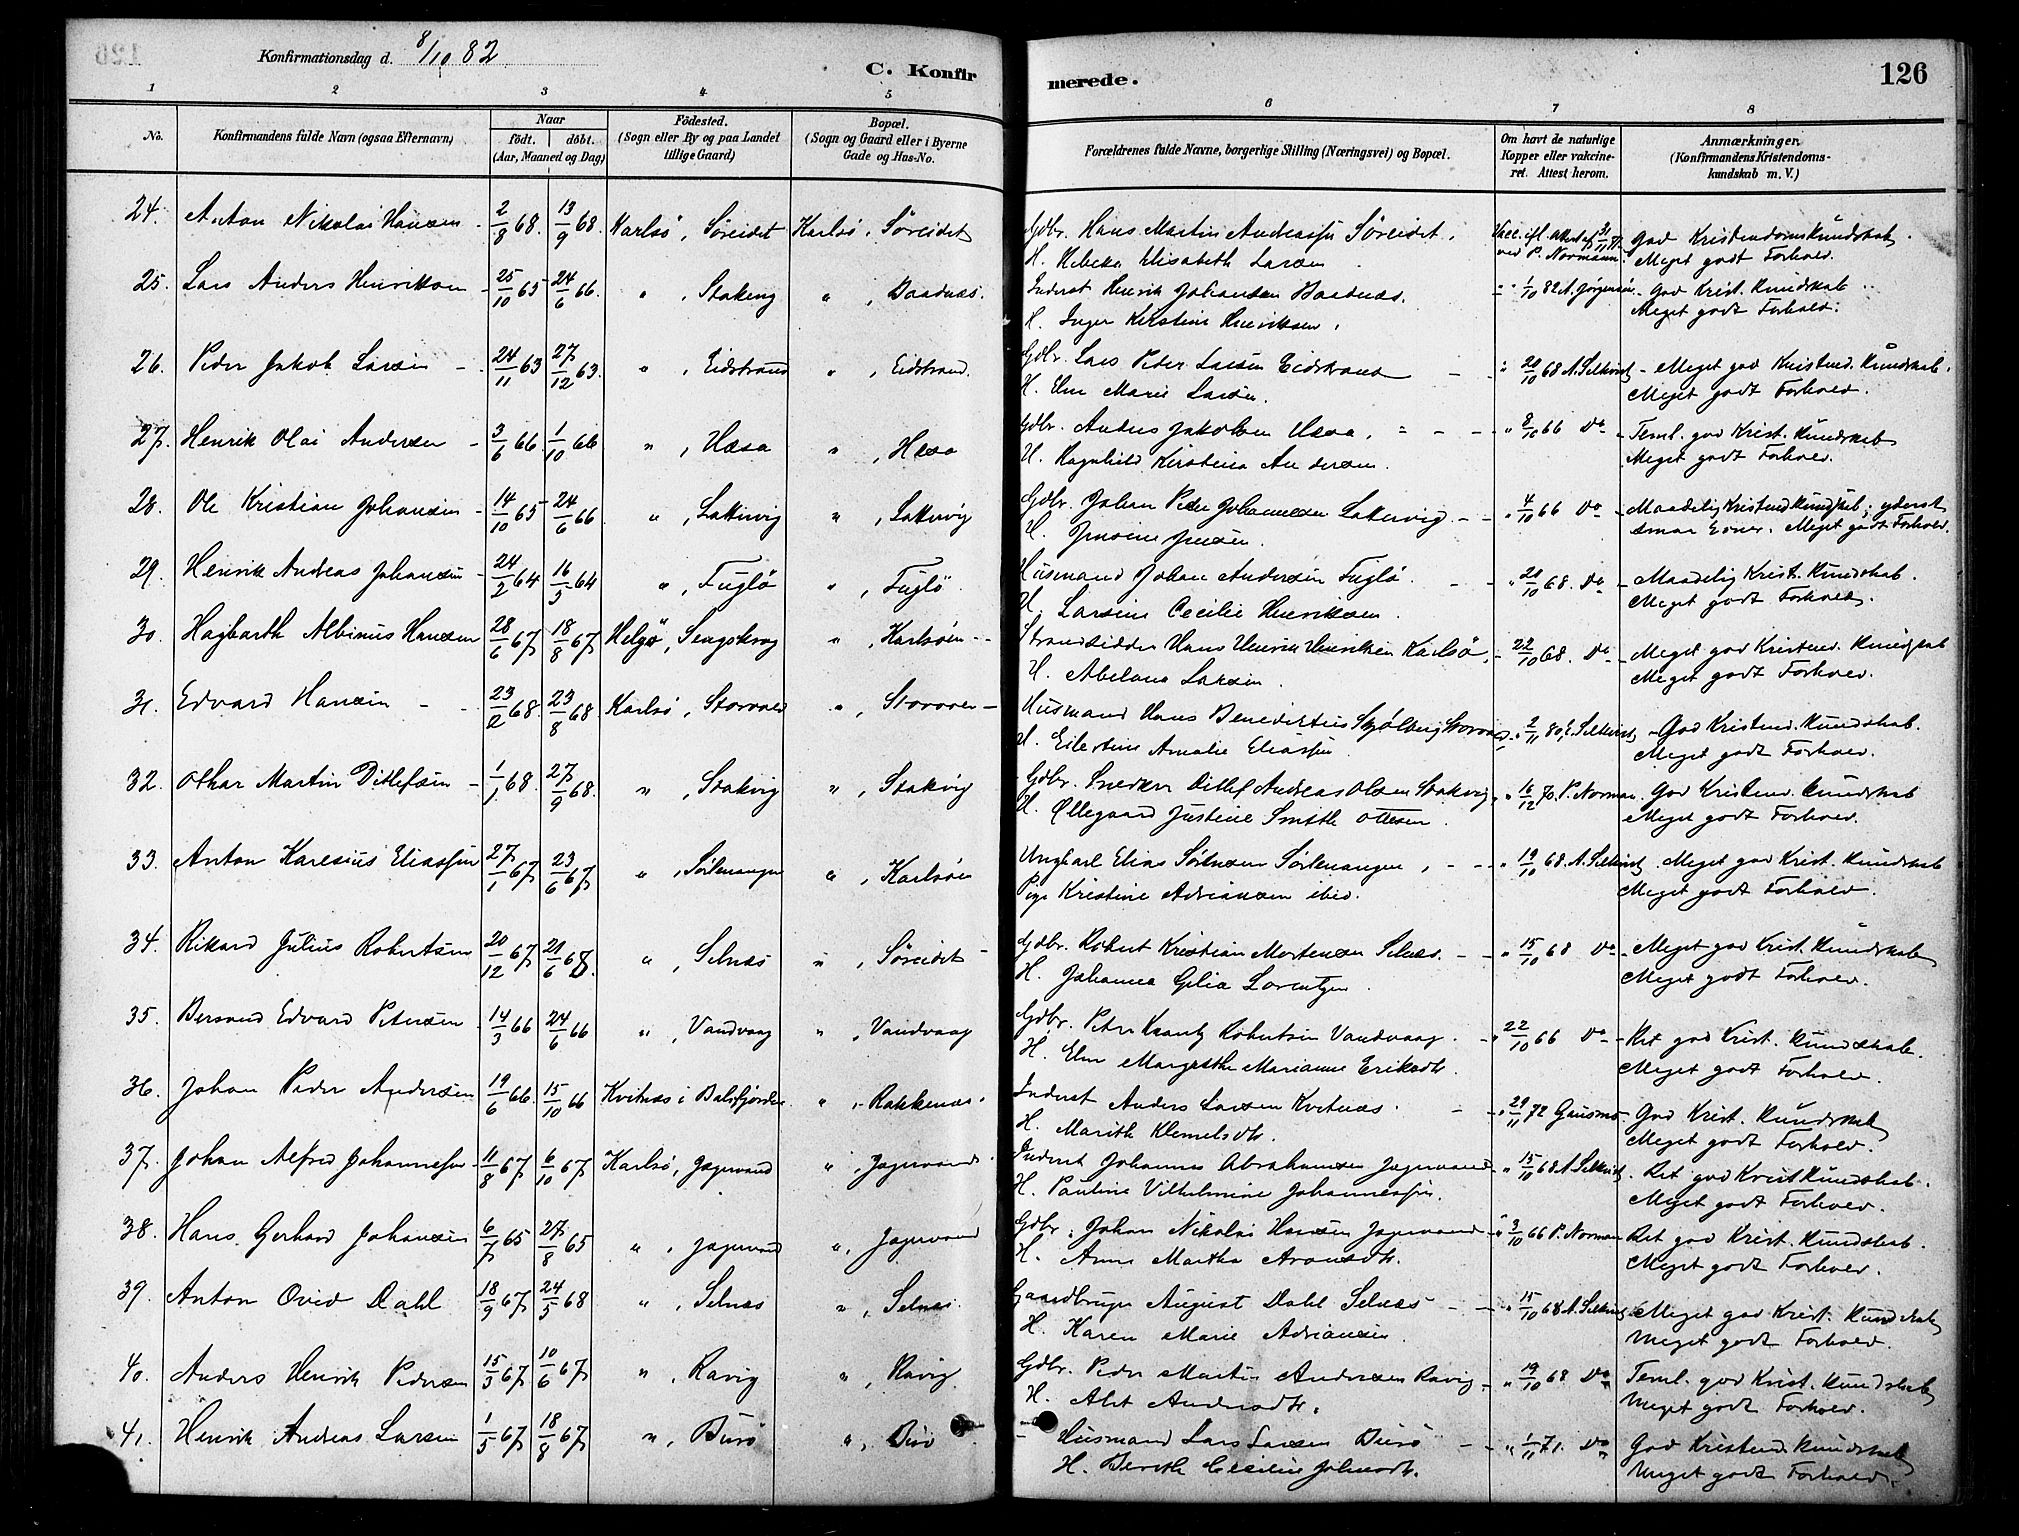 Konfirmationsdag d. 8/10 82
C. Konfirmerede.
126
1 2 3 4 5 6 7 8
No.
Konfirmandens fulde Navn (ogsaa Efternavn)
Naar
födt. döbt.
(Aar, Maaned og Dag)
Födested.
(Sogn eller By og paa Landet
tillige Gaard)
Bopæl.
(Sogn og Gaard eller i Byerne
Gade og Hus-No.
Forældrenes fulde Navne, borgerlige Stilling (Næringsvei) og Bopæl.
Om havt de naturlige
Kopper eller vakcine-
ret. Attest herom.
Anmærkninger
(Konfirmandens Kristendoms-
kundskab m. V.)
24. Anton Nikolai Hansen 2/8 68. 13/9 68. Karlsö, Söreidet Karlsö, Söreidet Gdbr. Hans Martin Andreassen Söreidet. God Kristendomskundskab.
H. Rebeka Elisabeth Larsen ved P. Normann. Meget godt Forhold.
25. Lars Anders Henriksen 25/10 65 24/6 66. " , Stakeng " , Baadnæs. Inderst Henrik Johansen Baadnæs. 1/10 82 A. Jörgensen God Krist. Kundskab
H. Inger Kirstine Henriksen. Meget godt Forhold.
26. Peder Jakob Larsen 24/11 63 27/12 63. " , Eidstrand " , Eidstrand. Gdbr. Lars Peder Larsen Eidstrand 20/10 68 A. Selkvist Meget god Kristend. Kundskab.
H. Elen Marie Larsen. Meget godt Forhold.
27. Henrik Olai Andersen 3/6 66. 1/10 66 " , Hæsa " , Hæsa Gdbr. Anders Jakobsen Hæsa. 8/10 66 Do Teml. god Krist. Kundskab
H. Ragnhild Kerstina Andersen. Meget godt Forhold.
28. Ole Kristian Johansen 14/10 65 24/6 66. " , Lattervig " , Lattervig Gdbr. Johan Peder Johannesen Lattervig 4/10 66 Do Maadelig Kristendkundskab; yderst
H. Jensen. smaa Evner. Meget godt Forhold.
29. Henrik Andreas Johansen 24/2 64 16/5 64 " , Fuglö " , Fuglö. Husmand Johan Andersen Fuglö. 20/10 68. Do Maadelig Krist. Kundskab.
H. Larsine Cecilie Henriksen. Meget godt Forhold.
30. Hagbarth Albinus Hansen 28/6 67 18/8 67 Helgö, Sengskrog " , Karlsöen Strandsidder Hans Henrik Henriksen Karlsö. 22/10 68. Do Meget god Kristend. Kundskab
H. Abelone Larsen. Meget godt Forhold.
31. Edvard Hansen 23/2 68. 23/8 68 Karlsö, Storvold " , Storvold Husmand Hans Benediktus Storvold 2/11 80, E. Selkvist God Kristend. Kundskab.
H. Eilertine Amalie Eliassen. Meget godt Forhold.
32. Othar Martin Ditlefsen 1/1 68. 27/9 68. " , Stakvig " , Stakvig Gdbr. Snedker Ditlef Andreas Olsen Stakvig 16/12 70. P. Norman. God Kristend. Kundskab
H. Ollegaard Justine Smith Ottesen. Meget godt Forhold.
33. Anton Karesius Eliassen 27/1 67 23/6 67 " , Sörlenangen " , Karlsöen Ungkarl Elias Sörensen Sörlenangen, 19/10 68. A. Selkvist. Meget god Krist. Kundskab
Pige Kristine Adriansen ibid. Meget godt Forhold.
34. Rikard Julius Robertsen 20/12 67 21/6 68. " , Selnæs " , Söreidet Gdbr. Robert Kristian Mortensen Selnæs. 15/10 68 Do Meget god Krist. Kundskab
H. Johanna Gelia Lorentzen. Meget godt Forhold.
35. Bersvend Edvard Petersen 14/3 66 24/6 66 " , Vandvaag " , Vandvaag Gdbr. Peter Krantz Robertsen Vandvaag. 22/10 66 Do Ret god Krist. Kundskab.
H. Elen Margrethe Marianne Eriksdtr. Meget godt Forhold.
36. Johan Peder Andersen 19/6 66. 15/10 66 Kvitnæs i Balsfjorden " , Rakkenæs. Inderst Anders Larsen Kvitnæs. 29/11 72 God Krist. Kundskab
H. Marith Klemetsdtr. Meget godt Forhold.
37. Johan Alfred Johannesen 11/8 67 6/10 67 Karlsö, Jægervand " , Jægervand. Inderst Johannes Abrahamsen Jægervand 15/10 68 A. Selkvist. Ret god Krist Kundskab.
H. Pauline Vilhelmine Johannessen. Meget godt Forhold.
38. Hans Gerhard Johansen 6/7 65 27/8 65 " , Jægervand " , Jægervand Gdbr. Johan Nikolai Hansen Jægervand 3/10 66 P. Norman Ret god Krist. Kundskab.
H. Anne Martha Aronsdtr. Meget godt Forhold.
39. Anton Ovid Dahl 18/9 67 24/5 68 " , Selnæs " , Selnæs. Gaardbruger August Dahl Selnæs 15/10 68 A. Selkvist Meget god Krist. Kundskab
H. Karen Marie Adriansen. Meget godt Forhold.
40. Anders Henrik Pedersen 15/3 67 10/6 67 " , Ravig " , Ravig. Gdbr. Peder Martin Andersen Ravig 19/10 68 Do Teml. god Krist. Kundskab
H. Alet Andersdtr. Meget godt Forhold.
41. Henrik Andreas Larsen 1/5 67 18/8 67 " , Burö " , Burö Husmand Lars Larsen Burö 1/11 71. Do God Kristend. Kundskab
H. Berith Cecilie Johnsdtr. Meget godt Forhold.